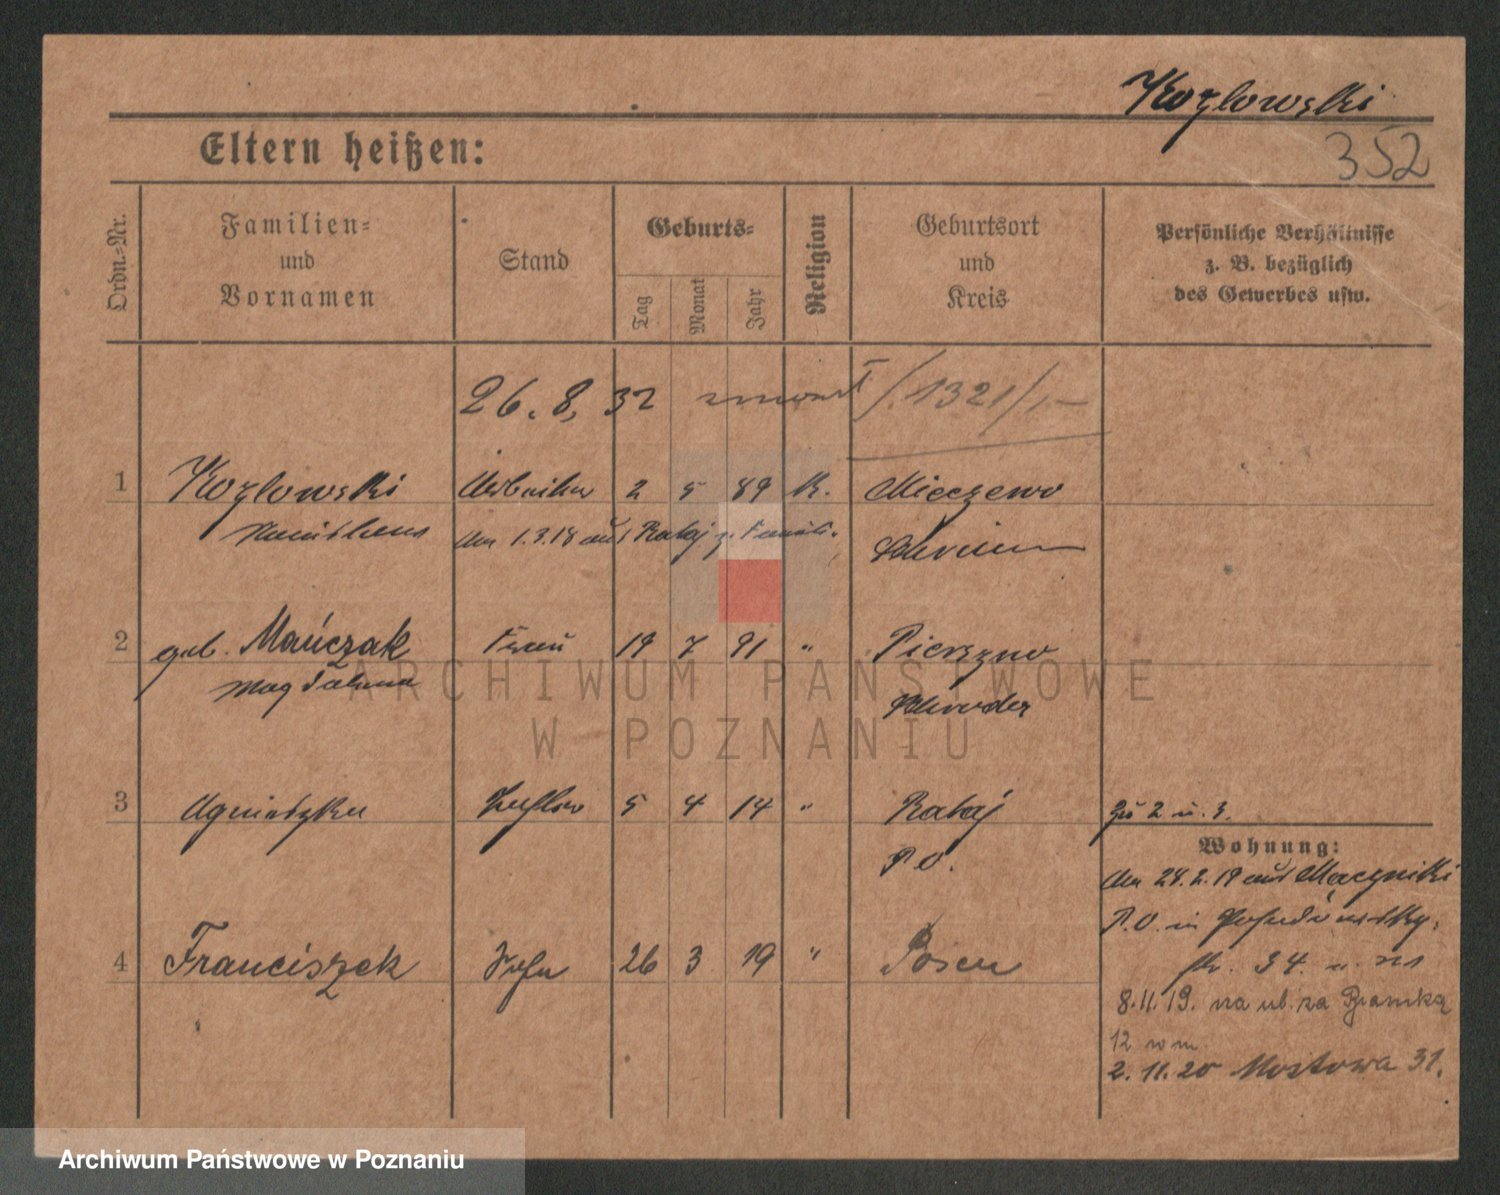 Kozlowski
352
Eltern heißen:
Ordn.-Nr.
Familien-
und
Vornamen
Stand
Geburts-
Tag
Monat
Jahr
Religion
Geburtsort
und
Kreis
Persönliche Verhältnisse
z. B. bezüglich
des Gewerbes usw.
26. 8. 32 /1321/,—
1 Kozlowski Arbeiter 2 5 89 K. Mieczewo
Am 1.3.18 aus Rataj z. Famili. Schrimm
2 geb. Mańczak Frau 19 7 91 " Pierszno
Magdalena Schroda
3 Agnieszka Tochter 5 4 14 " Rataj
P. O.
Zu 2 u. 3.
Wohnung:
Am 24.2.19 aus Mączniki
P.O. in
str. 34. u.
4 Franciszek Sohn 26 3 19 " Posen
8.11.19. na ul. za Bramką
12 wm.
2. 11. 20 Mostowa 31.
ARCHIWUM PAŃSTWOWE
W POZNANIU
Archiwum Państwowe w Poznaniu